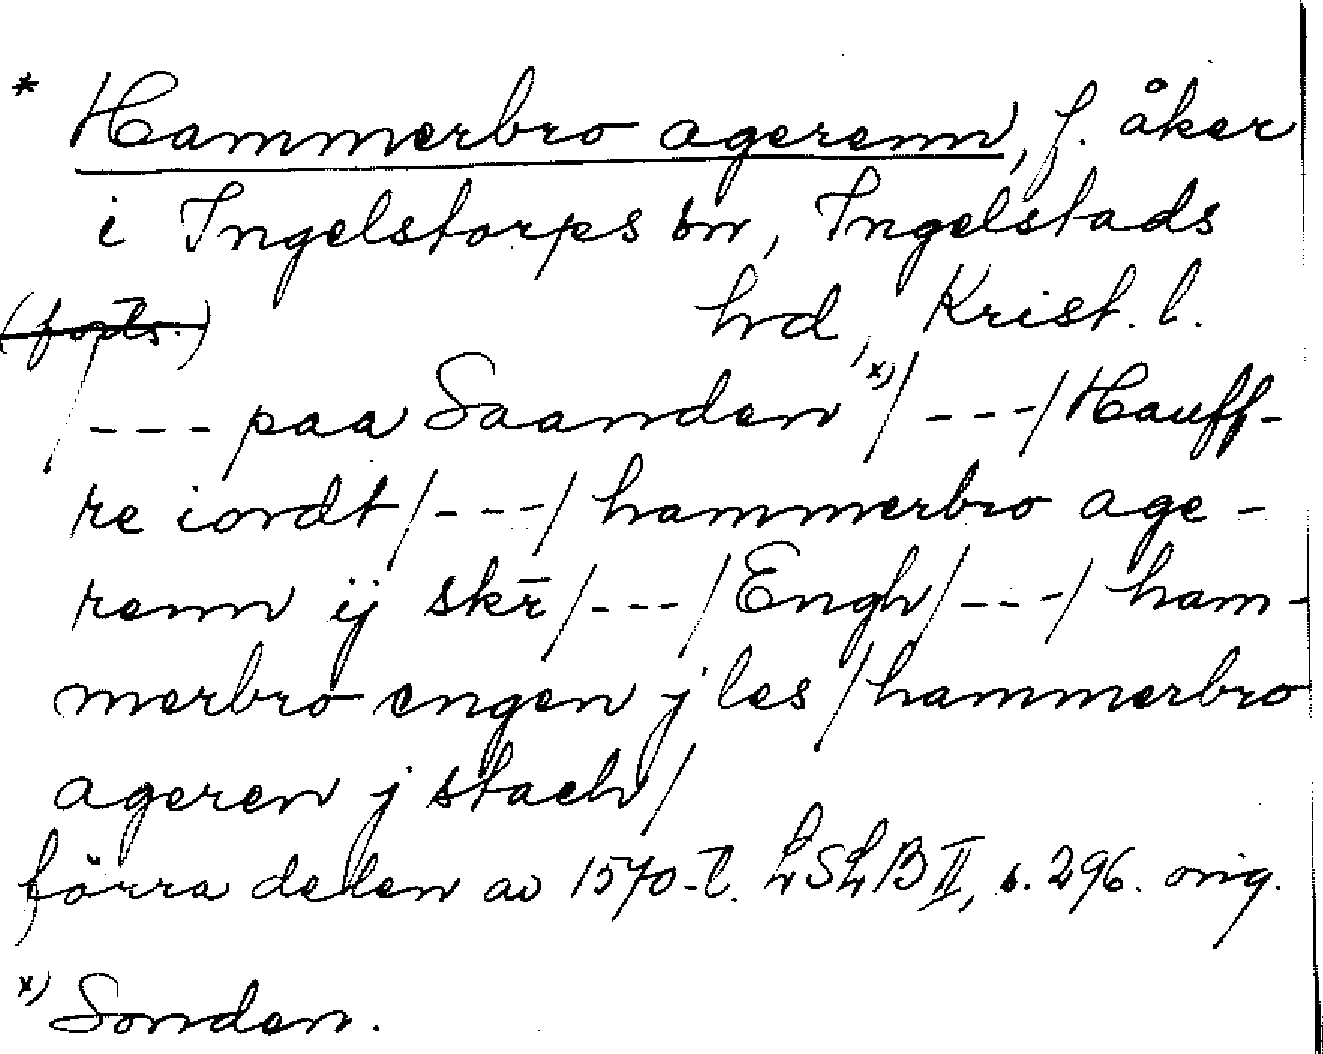 * Hammerbro agerenn, f. åker
i Ingelstorps sn, Ingelstads
(forts.) hd, Krist. l.
/--- paa Saanden x)/---/ Hauff-
re iordt/---/ hammerbro age-
renn ij skr̄/---/ Engh/---/ ham-
merbro engen j les / hammerbro
ageren j stach/
förra delen av 1570-t. LSLB II, s. 296. orig.
x) Sonden.